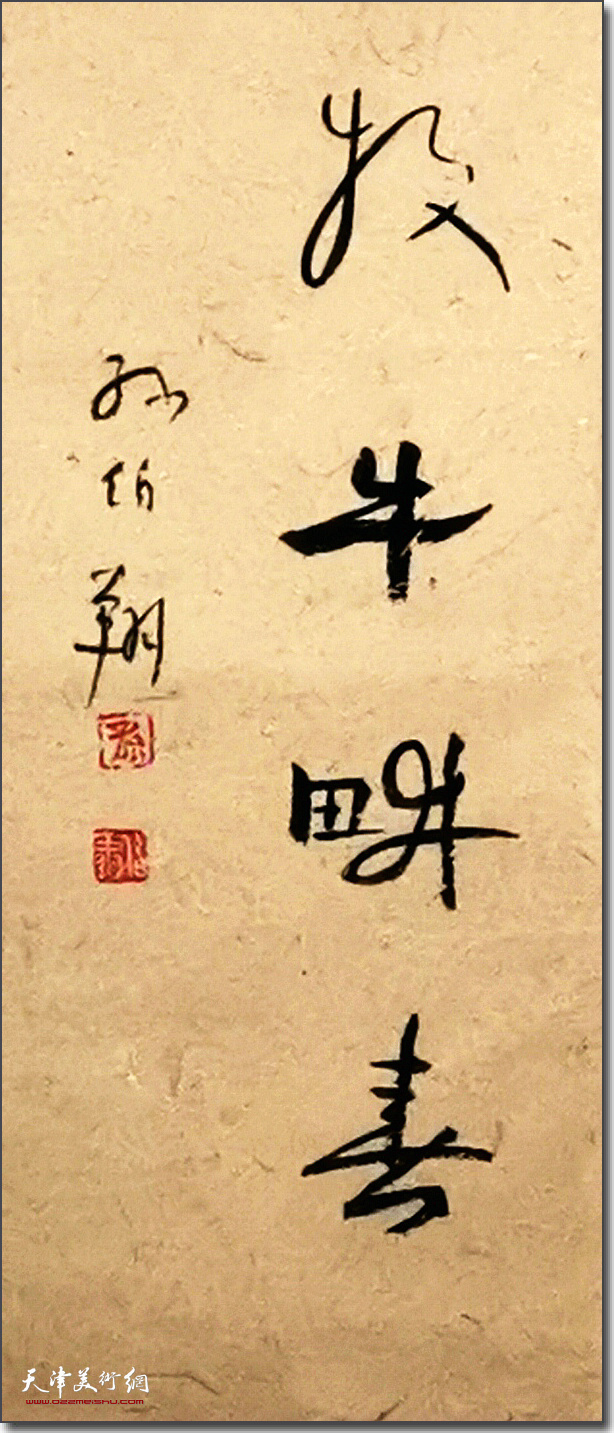 牧牛畊春
孙伯翔
天津美術網
www.022meishu.com